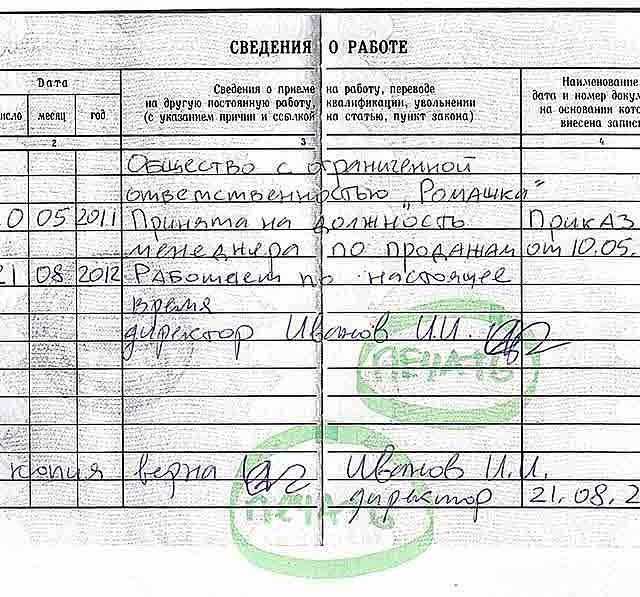 СВЕДЕНИЯ О РАБОТЕ
Дата
Сведения о приеме на работу, переводе
на другую постоянную работу, квалификации, увольнении
(с указанием причин и ссылкой на статью, пункт закона)
Наименование
дата и номер докум
на основании кото
внесена запис
исло месяц год
2 3 4
Общество с ограниченной
ответственностью „Ромашка“
0 05 2011 Принята на должность Приказ
менеджера по продажам от 10.05.
21 08 2012 Работает по настоящее
время
директор Иванов И.И.
ПЕЧАТЬ
копия верна Иванов И.И.
директор 21.08.2
ПЕЧАТЬ